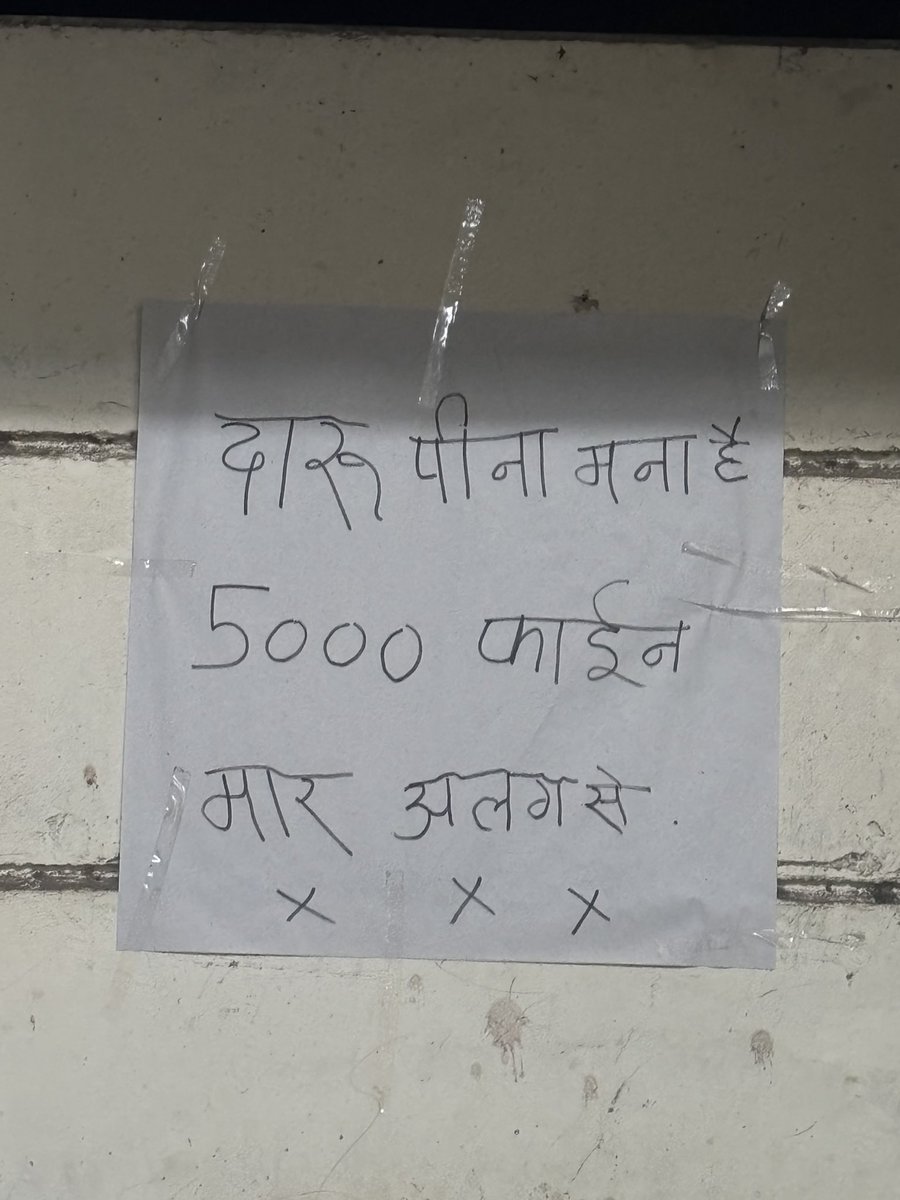 दारू पीना मना है
5000 फाईन
मार अलग से .
x x x